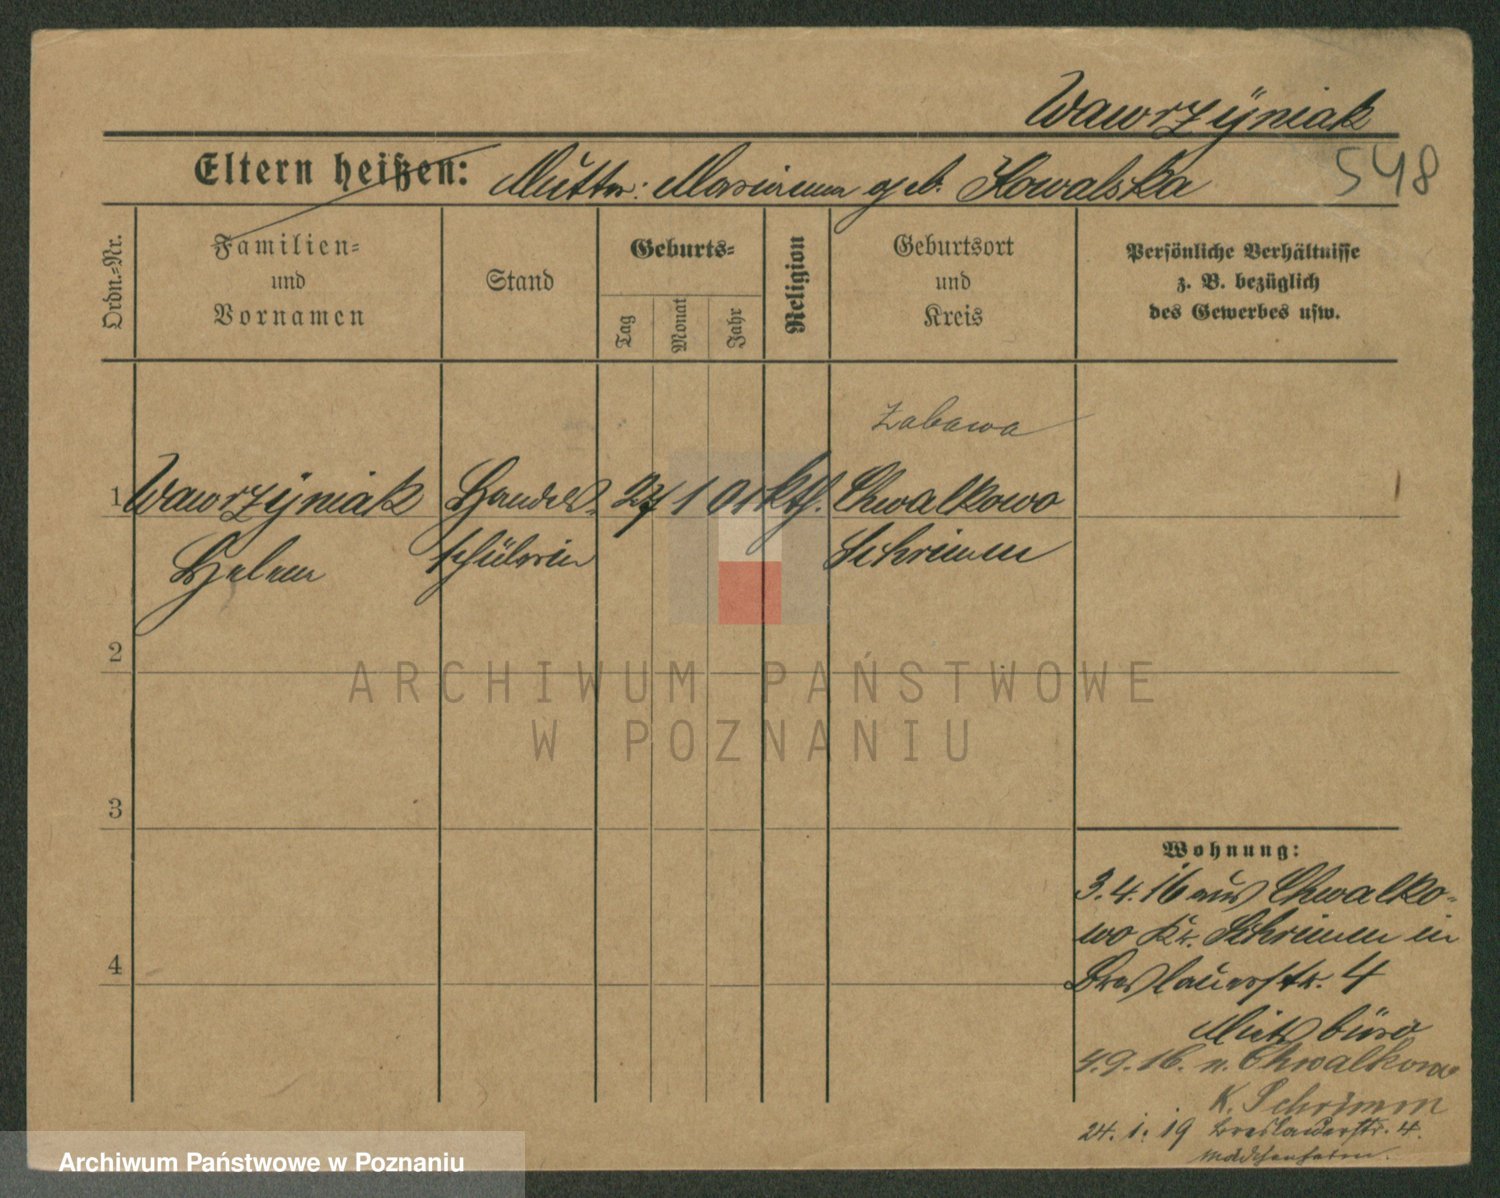 Wawrzÿniak
548
Eltern heißen: Mutter: Marianna geb. Kowalska
Ordn.-Nr.
Familien-
und
Vornamen
Stand
Geburts-
Tag
Monat
Jahr
Religion
Geburtsort
und
Kreis
Persönliche Verhältnisse
z. B. bezüglich
des Gewerbes usw.
Zabawa
1 Wawrzÿniak Handels- 27 1 01 kth. Chwalkowo
Helene schülerin Schrimm
2
3
4
Wohnung:
3.4.16 aus Chwalko-
wo Kr. Schrimm in
Breslauerstr. 4
Mietsbüro
4.9.16. n. Chwalkowo
K. Schrimm
24.1.19 Breslauerstr. 4.
Mädchenheim.
ARCHIWUM PAŃSTWOWE
W POZNANIU
Archiwum Państwowe w Poznaniu